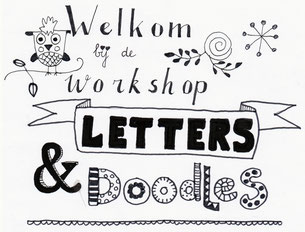 Welkom
bij de
Workshop
LETTERS
& Doodles